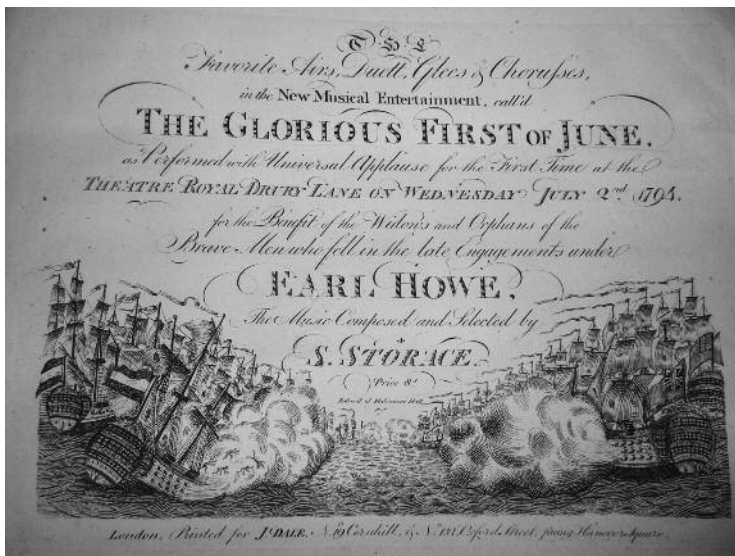 THE
Favorite Airs, Duett, Glees & Chorusses,
in the New Musical Entertainment, call'd
THE GLORIOUS FIRST OF JUNE.
as Performed with Universal Applause for the First Time at the
THEATRE ROYAL DRURY LANE ON WEDNESDAY JULY 2nd 1794.
for the Benefit of the Widows and Orphans of the
Brave Men who fell in the late Engagements under
EARL HOWE,
The Music Composed and Selected by
S. STORACE.
Price 8s
Entered at Stationers Hall
London, Printed for Js. DALE, No. 19 Cornhill, & No. 132, Oxford Street, facing Hanover Square.